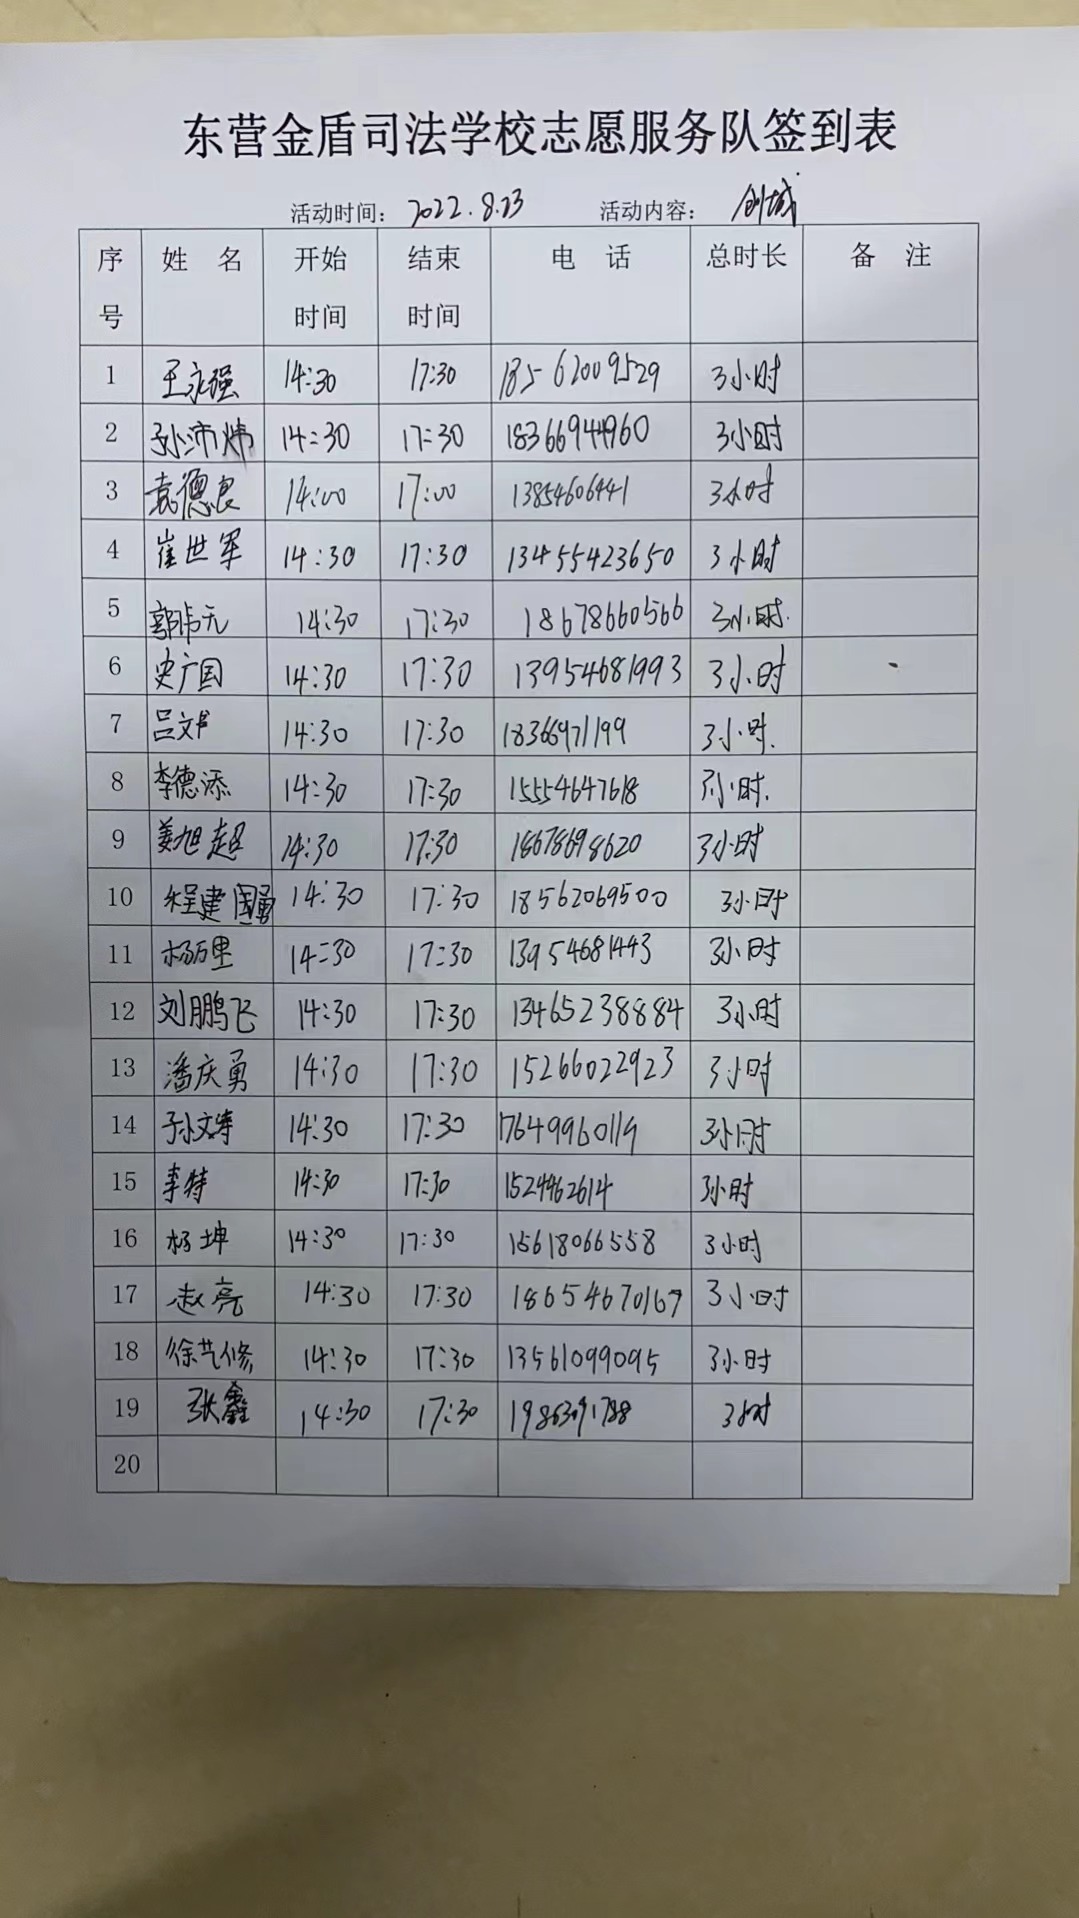 东营金盾司法学校志愿服务队签到表
活动时间: 2022.8.23 活动内容: 创城
序号 姓名 开始时间 结束时间 电话 总时长 备注
1 王永强 14:30 17:30 18562009529 3小时
2 孙沛炜 14:30 17:30 18366944960 3小时
3 袁德良 14:00 17:00 13854606441 3小时
4 崔世军 14:30 17:30 13455423650 3小时
5 郭 14:30 17:30 18678660566 3小时.
6 史广国 14:30 17:30 13954681993 3小时
7 吕文 14:30 17:30 18366971199 3小时.
8 李德添 14:30 17:30 15554647618 3小时.
9 姜旭超 14:30 17:30 18678698620 3小时
10 程建 14:30 17:30 18562069500 3小时
11 杨万里 14:30 17:30 13954681443 3小时
12 刘鹏飞 14:30 17:30 13465238884 3小时
13 潘庆勇 14:30 17:30 15266022923 3小时
14 孙文涛 14:30 17:30 17649960119 3小时
15 李特 14:30 17:30 3小时
16 杨坤 14:30 17:30 15618066558 3小时
17 赵亮 14:30 17:30 18654670167 3小时
18 徐艺修 14:30 17:30 13561099095 3小时
19 张鑫 14:30 17:30 19863091788 3小时
20